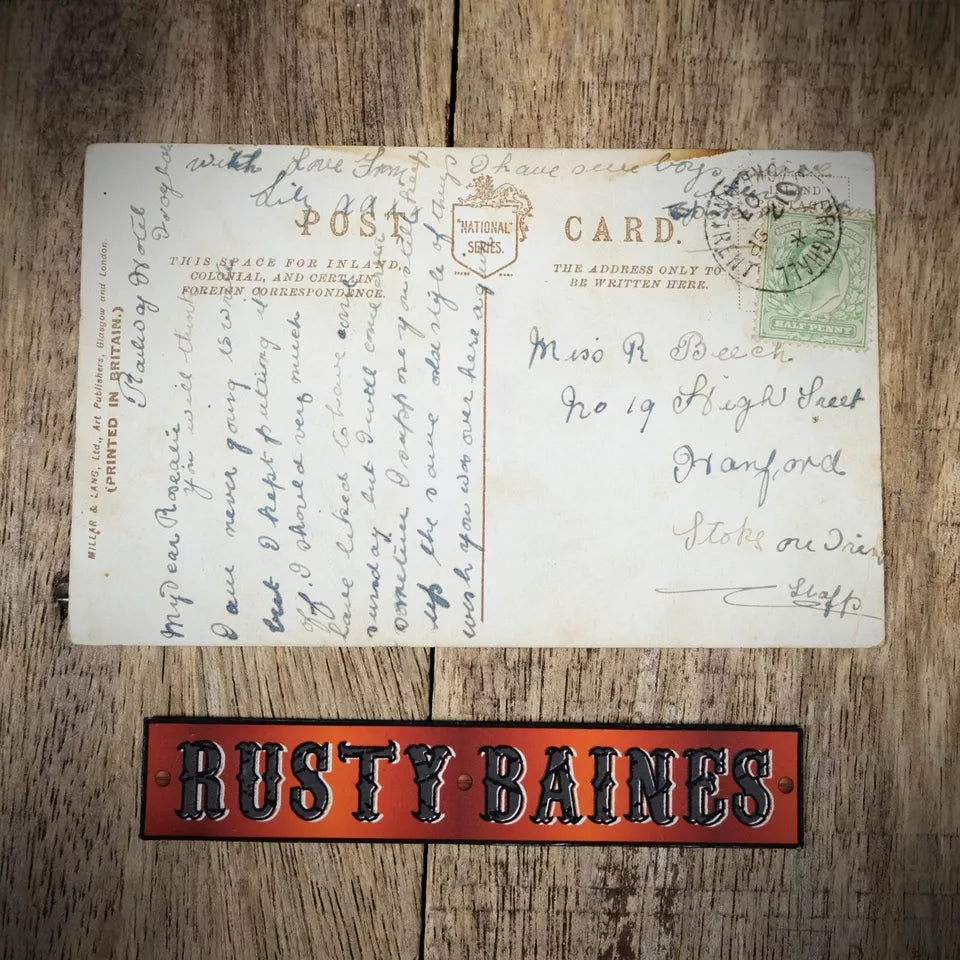 with love from
Lily
I have seen boys
POST CARD.
"NATIONAL"
SERIES.
TRADE MARK
THIS SPACE FOR INLAND,
COLONIAL, AND CERTAIN
FOREIGN CORRESPONDENCE.
THE ADDRESS ONLY TO
BE WRITTEN HERE.
HALF PENNY
FROGHALL
Miss R Beech
No 19 High Street
Hanford
Stoke on Tren
Staff
MILLAR & LANG, Ltd., Art Publishers, Glasgow and London.
(PRINTED IN BRITAIN.)
Railway Hotel
Froghall
My Dear Rosalie
you will think
I am never going to write
but I kept putting it
off. I should very much
have liked to have come
sunday but I will come some
sometime I suppose you still keep
up the same old style of things
wish you was over here again
RUSTY BAINES